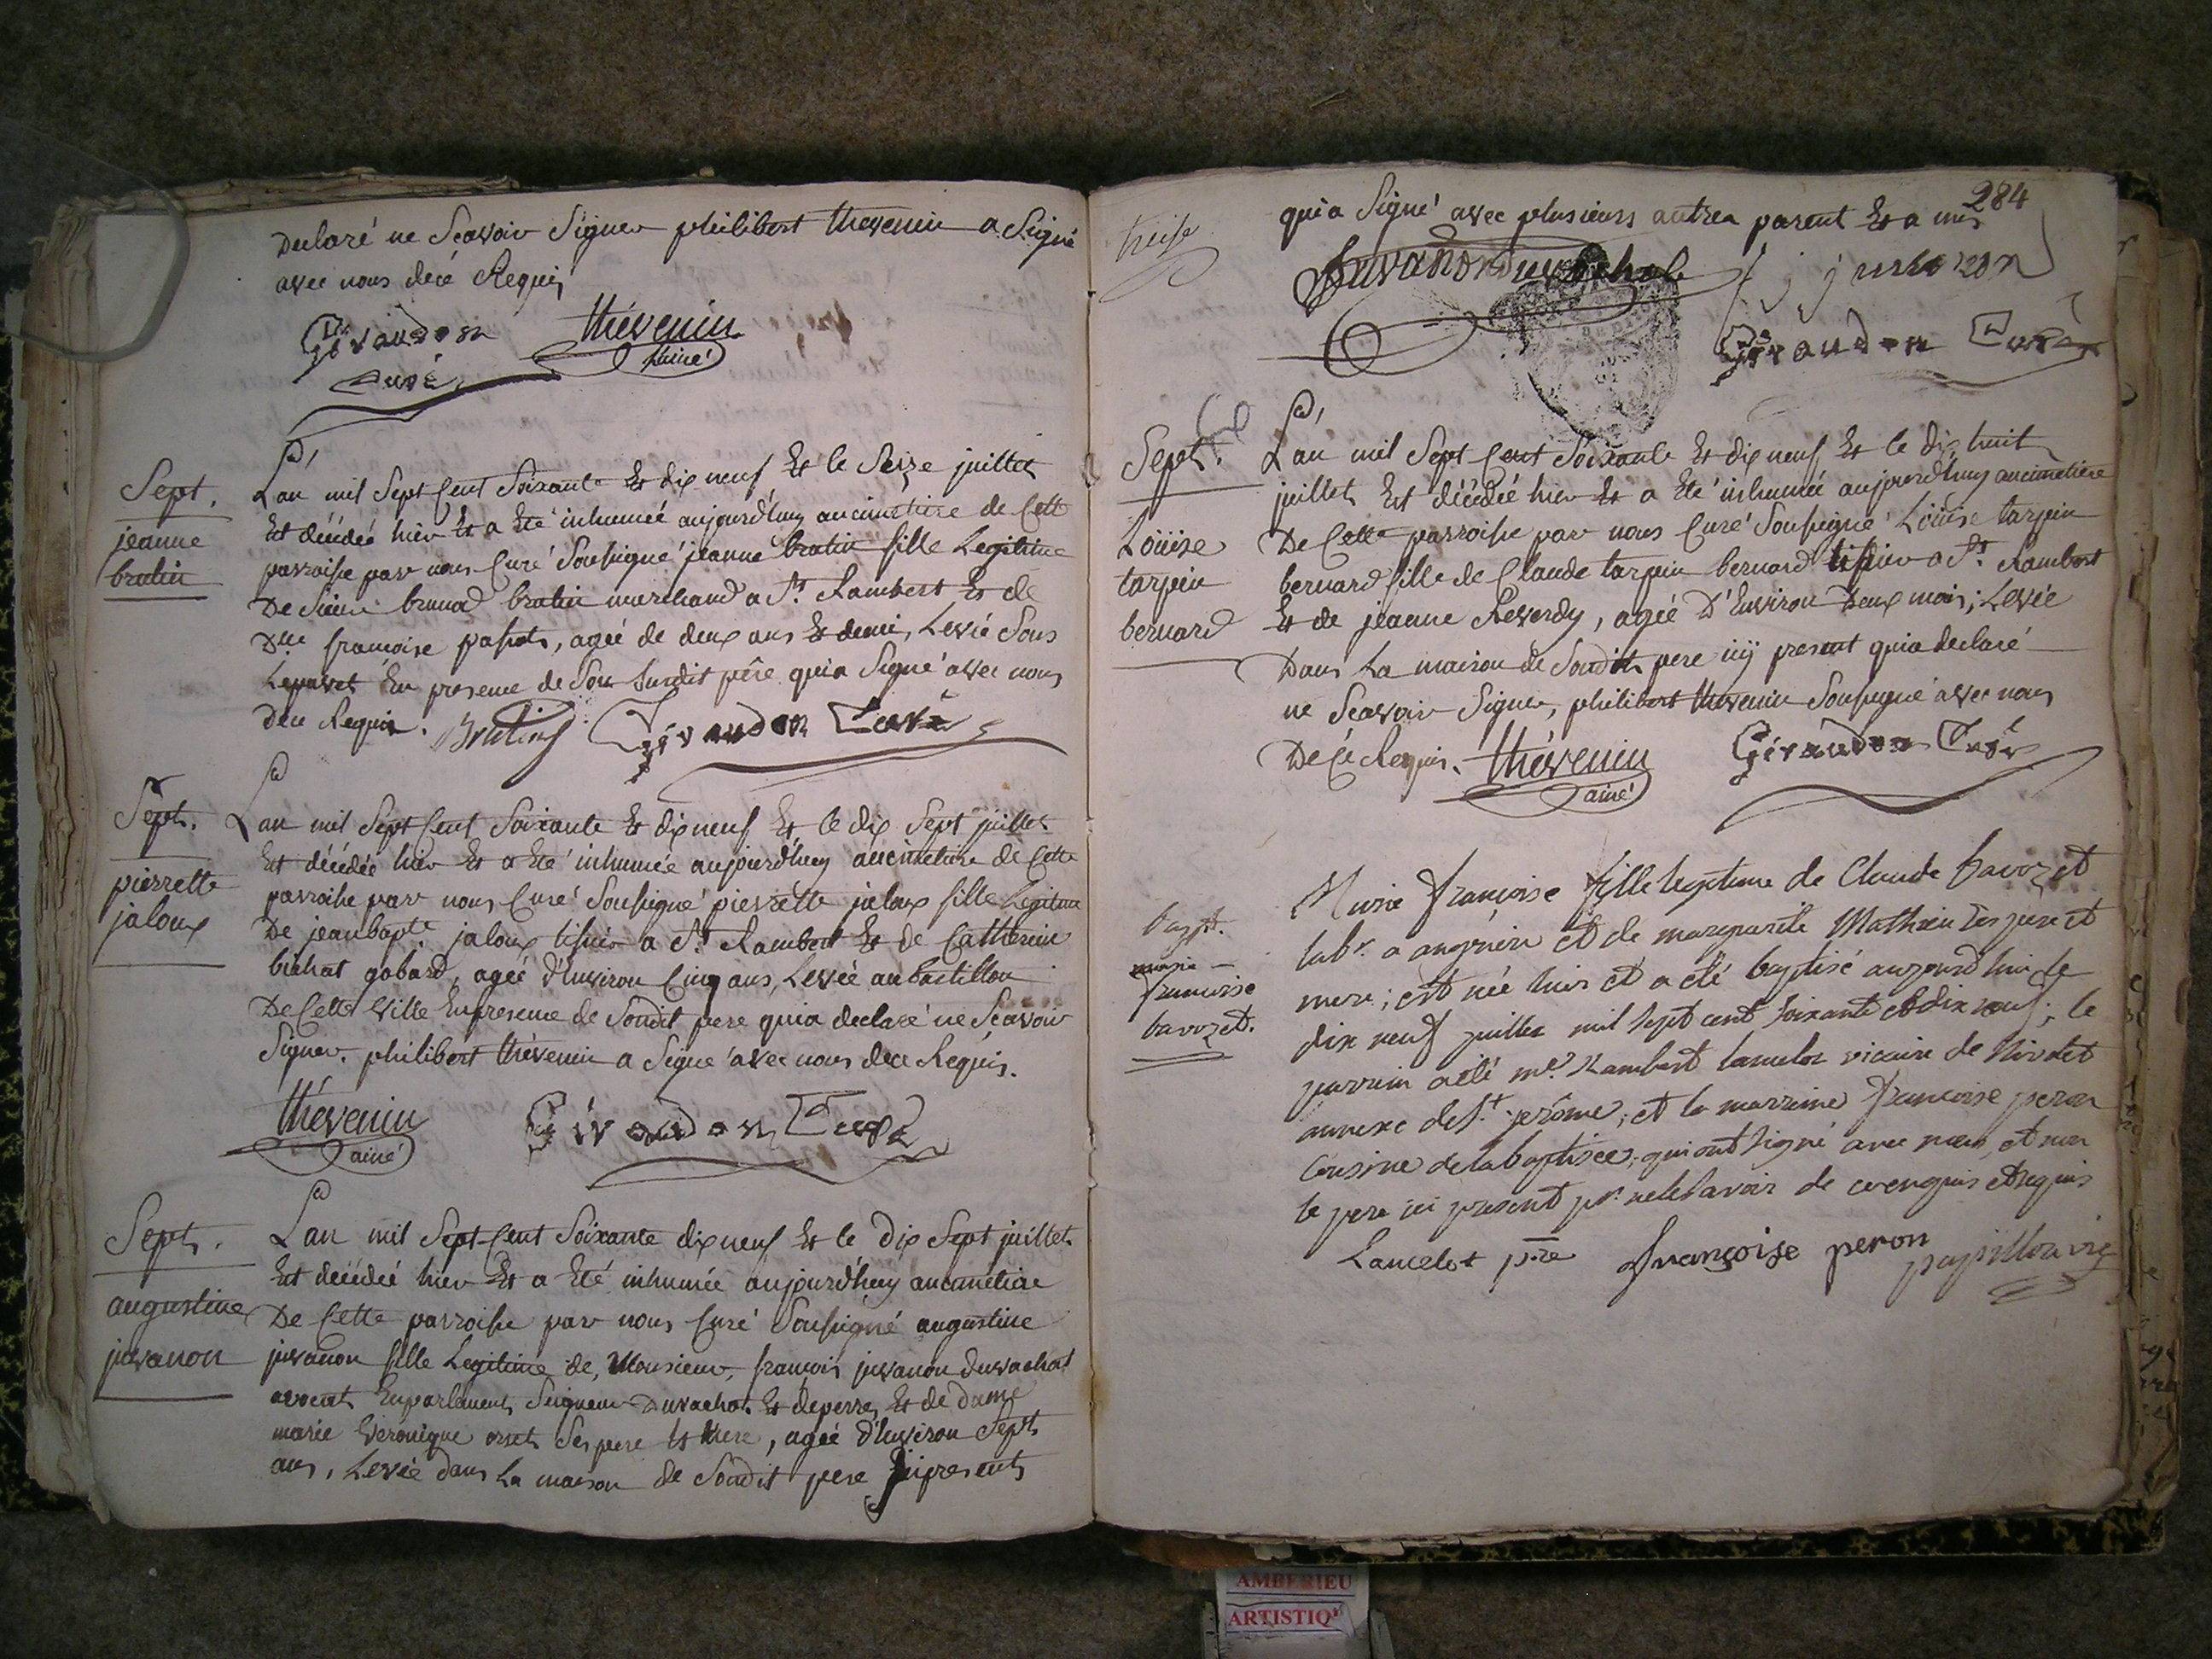 Declaré ne Scavoir Signer philibert thevenin a Signé
avec nous decé Requis
Giraudon thévenin
Curé l'ainé
Sept.
jeanne
brutin
L'an mil Sept Cent Soixante Et dix neuf Et le Seize juillet
Est décédée hier Et a Eté inhumée aujourd'huy aucimetiere de Cette
parroisse par nous Curé Soussigné jeanne brutin fille Legitime
De Sieur brutin marchand a St. Rambert Et de
Dlle francoise passot, agée de deux ans Et demi, Levée Sous
En presence de Son Susdit père quia Signé avec nous
dece Requis. Brutin Giraudon Curé
Sept.
pierrette
jaloux
L'an mil Sept Cent Soixante Et dix neuf Et le dix Sept juillet
Est décédée hier Et a Eté inhumée aujourd'huy aucimetiere de Cette
parroisse par nous Curé Soussigné pierrette jaloux fille Legitime
De jeanbapte. jaloux tissier a St. Rambert Et de Catherine
bichat gobard, agée d'Environ Cinq ans, Levée aubastillon
De Cette Ville Enpresence de Sondit pere quia declaré ne Scavoir
Signer. philibert thévenin a Signé avec nous dece Requis.
thévenin Giraudon Curé
ainé
Sept.
augustine
juvanon
L'an mil Sept Cent Soixante dix neuf Et le Dix Sept juillet
Est décédée hier Et a Eté inhumée aujourd'huy aucimetiere
De Cette parroisse par nous Curé Soussigné augustine
juvanon fille Legitime de, Monsieur, francois juvanon duvachat
avocat Enparlement, Seigneur Duvachat Et deperres Et de Dame
marie Veronique orset Ses pere Et Mere, agée d'Environ Sept
ans, Levée dans La maison de Sondit pere Ipresent
284
treise
quia Signé avec plusieurs autres parent Et a mis
Juvanon duvachat j j juvanon
Giraudon Curé
Sept.
Loüise
tarpin
bernard
L'an mil Sept Cent Soixante Et dix neuf Et le dix huit
juillet Est décédée hier Et a Eté inhumée aujourd'huy aucimetiere
De Cette parroisse par nous Curé Soussigné Loüise tarpin
bernard fille de Claude tarpin bernard tissier a St. Rambert
Et de jeanne Reverdy, agée D'Environ Deux mois, Levée
Dans La maison de Sondit pere icy present quia declaré
ne Scavoir Signer, philibert thevenin Soussigné avec nous
De Ce Requis. thévenin Giraudon Curé
ainé
bapt.
marie
francoise
bavozet.
Marie françoise fille legitime de Claude bavozet
labr. a angriere et de marguerite Mathieu ses pere et
mere; est née hier et a eté baptisé aujourd'hui le
dix neuf juillet mil sept cent soixante et dix neuf; le
parrain a eté mre. Rambert lancelot vicaire de Nivolet
annexe de St. jerôme; et la marraine francoise peron
Cousine de la baptisée; qui ont signé avec nous, et non
le pere ici present pr. ne le savoir de ce enquis et requis
Lancelot ptre françoise peron papillon vic
AMBERIEU
ARTISTIQ